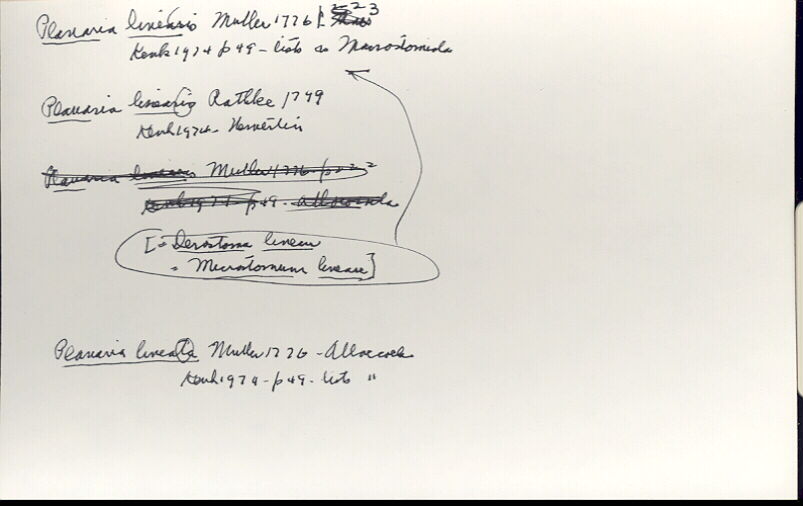 Planaria linearis Muller 1776 p 223
Kenk 1974 p 49 - lists as Macrostomida
Planaria linearis Rathke 1799
Kenk 1974 - Nemertin
Planaria linearis Muller 1776 - p 222
Kenk 1974 - p 49 - alloeocoela
[= Derostoma lineare
= Microstomum lineare]
Planaria lineata Muller 1776 - Alloeocoela
Kenk 1974 - p 49 - lists "